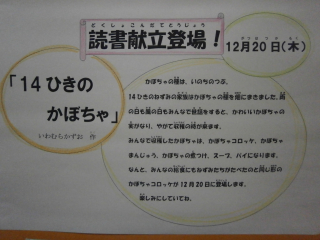 どくしょこんだてとうじょう
読書献立登場！
12月20日(木)
「14ひきの
かぼちゃ」
いわむらかずお 作
かぼちゃの種は、いのちのつぶ。
14ひきのねずみの家族はかぼちゃの種を畑にまきました。雨
の日も風の日もみんなで世話をすると、かわいいかぼちゃの
実がなり、やがて収穫の時が来ます。
みんなで収穫したかぼちゃは、かぼちゃコロッケ、かぼちゃ
まんじゅう、かぼちゃの煮つけ、スープ、パイになります。
なんと、みんなの給食にもねずみたちがたべたのと同じ形の
かぼちゃコロッケが12月20日に登場します。
楽しみにしていてね。